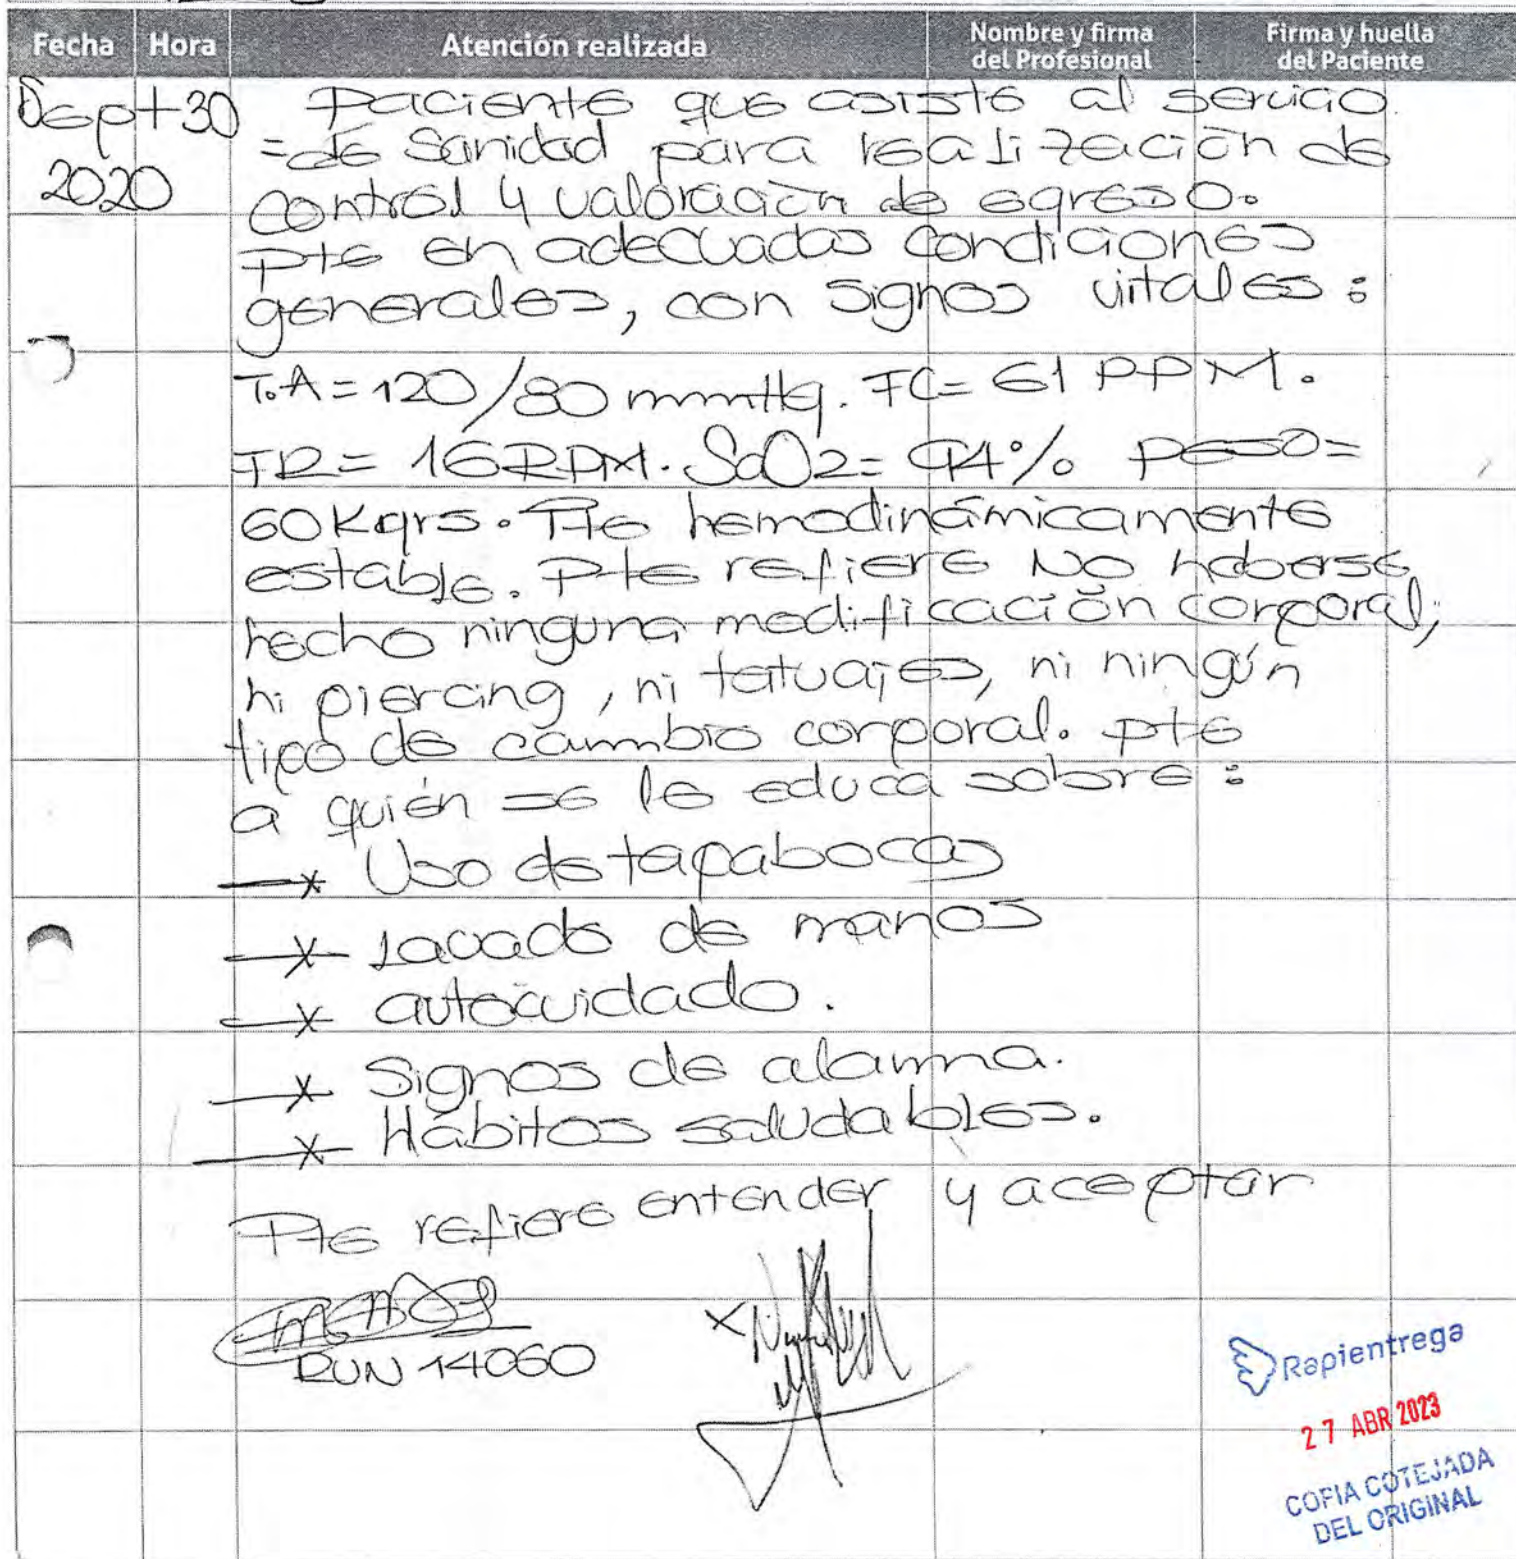 Fecha Hora Atención realizada Nombre y firma del Profesional Firma y huella del Paciente
Sept 30 Paciente que asiste al servicio
2020 = de Sanidad para realización de
control y valoración de egreso.
Pte en adecuadas condiciones
generales, con signos vitales:
T.A = 120/80 mmHg. FC = 61 PPM.
FR = 16 RPM. SaO2 = 94% Peso =
60 Kgrs. Pte hemodinámicamente
estable. Pte refiere NO haberse
hecho ninguna modificación corporal,
ni piercing, ni tatuajes, ni ningún
tipo de cambio corporal. pte
a quién se le educa sobre:
—x Uso de tapabocas
—x Lavado de manos
—x autocuidado.
—x Signos de alarma.
—x Hábitos saludables.
Pte refiere entender y aceptar
RUN 14060
x
Rapientrega
27 ABR 2023
COPIA COTEJADA
DEL ORIGINAL